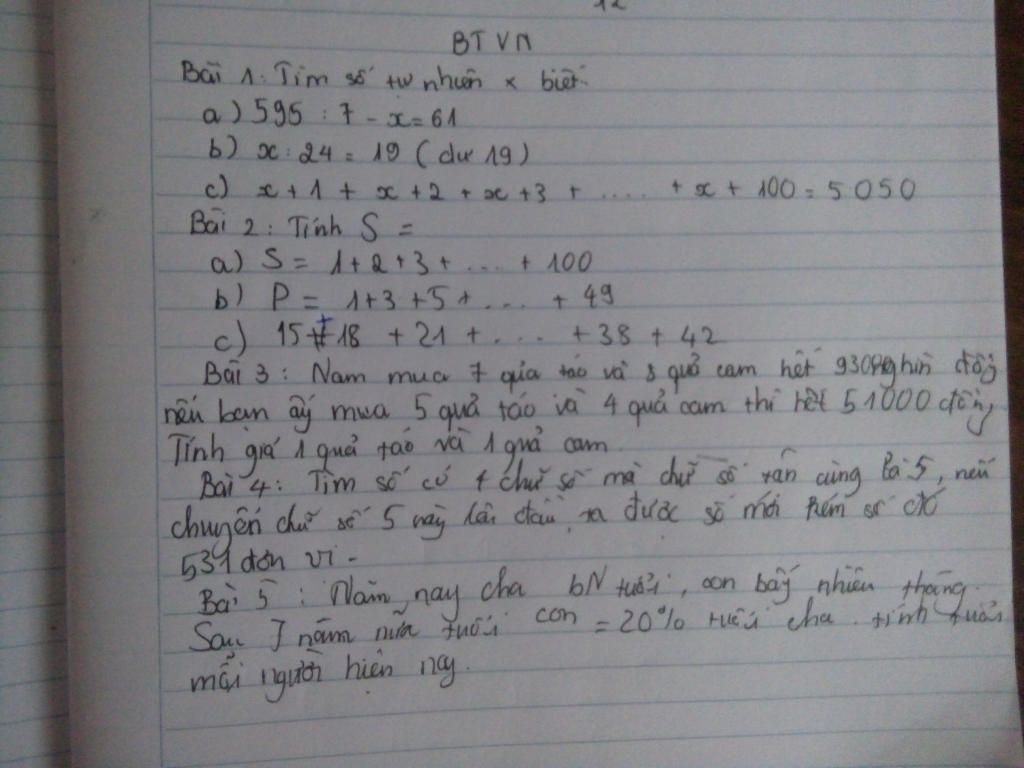 12
BTVN
Bài 1: Tìm số tự nhiên x biết
a) 595 : 7 - x = 61
b) x : 24 = 19 (dư 19)
c) x + 1 + x + 2 + x + 3 + ..... + x + 100 = 5050
Bài 2: Tính S =
a) S = 1 + 2 + 3 + ... + 100
b) P = 1 + 3 + 5 + ... + 49
c) 15 + 18 + 21 + ... + 38 + 42
Bài 3: Nam mua 7 quả táo và 8 quả cam hết đồng
nếu bạn ấy mua 5 quả táo và 4 quả cam thì hết 51000 đồng,
Tính giá 1 quả táo và 1 quả cam.
Bài 4: Tìm số có 4 chữ số mà chữ số tận cùng là 5, nếu
chuyển chữ số 5 này lên đầu ta được số mới kém số đó
531 đơn vi.
Bài 5: Năm nay cha tuổi, con bấy nhiêu tháng.
Sau 7 năm nữa tuổi con = 20% tuổi cha. tính tuổi
mỗi người hiện nay.